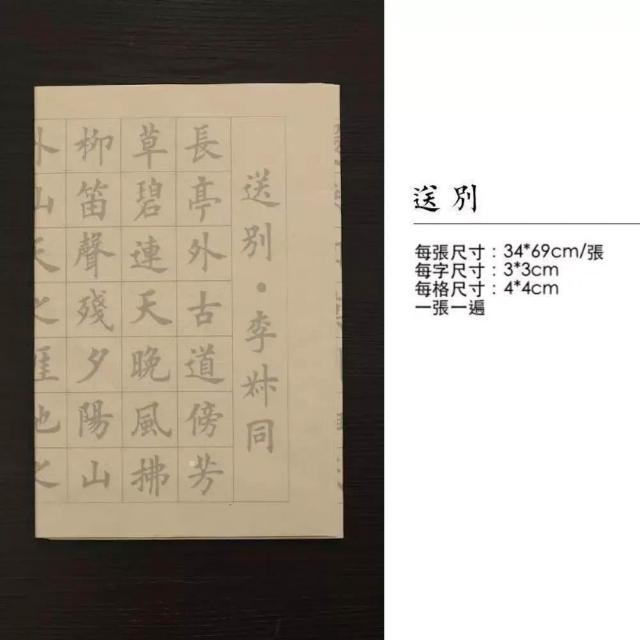 送别·李叔同
長亭外古道傍芳
草碧連天晚風拂
柳笛聲殘夕陽山
外山天之涯地之
送别
每張尺寸：34*69cm/張
每字尺寸：3*3cm
每格尺寸：4*4cm
一張一遍